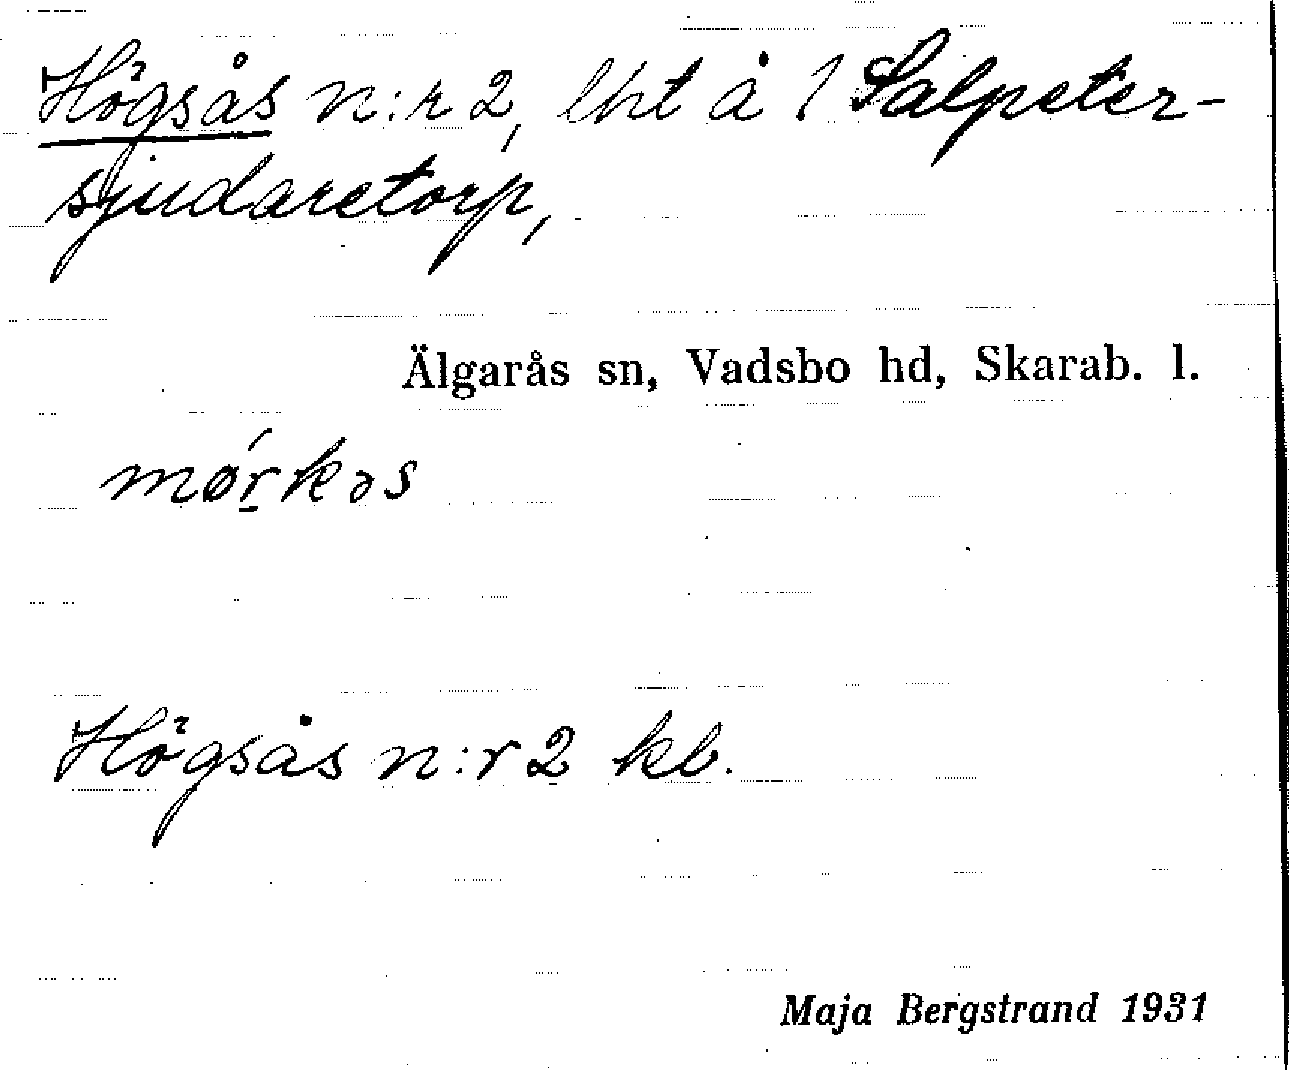 Högsås n:r 2, lht å 1 Salpeter-
sjudaretorp,
Älgarås sn, Vadsbo hd, Skarab. l.
mǿr̠kəs
Högsås n:r 2 kb.
Maja Bergstrand 1931